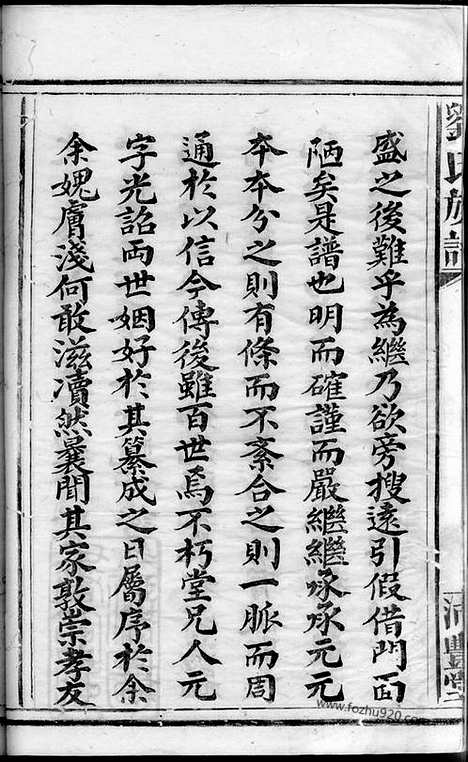 劉氏族譜
盛之後難乎為繼乃欲旁搜遠引假借門面
陋矣是譜也明而確謹而嚴繼繼承承元元
本本分之則有條而不紊合之則一脈而周
通於以信今傳後雖百世為不朽堂兄人元
字光詔兩世姻好於其纂成之日屬序於余
余媿膚淺何敢滋瀆然曩聞其家敦崇孝友
豐堂
www.fozhu920.com